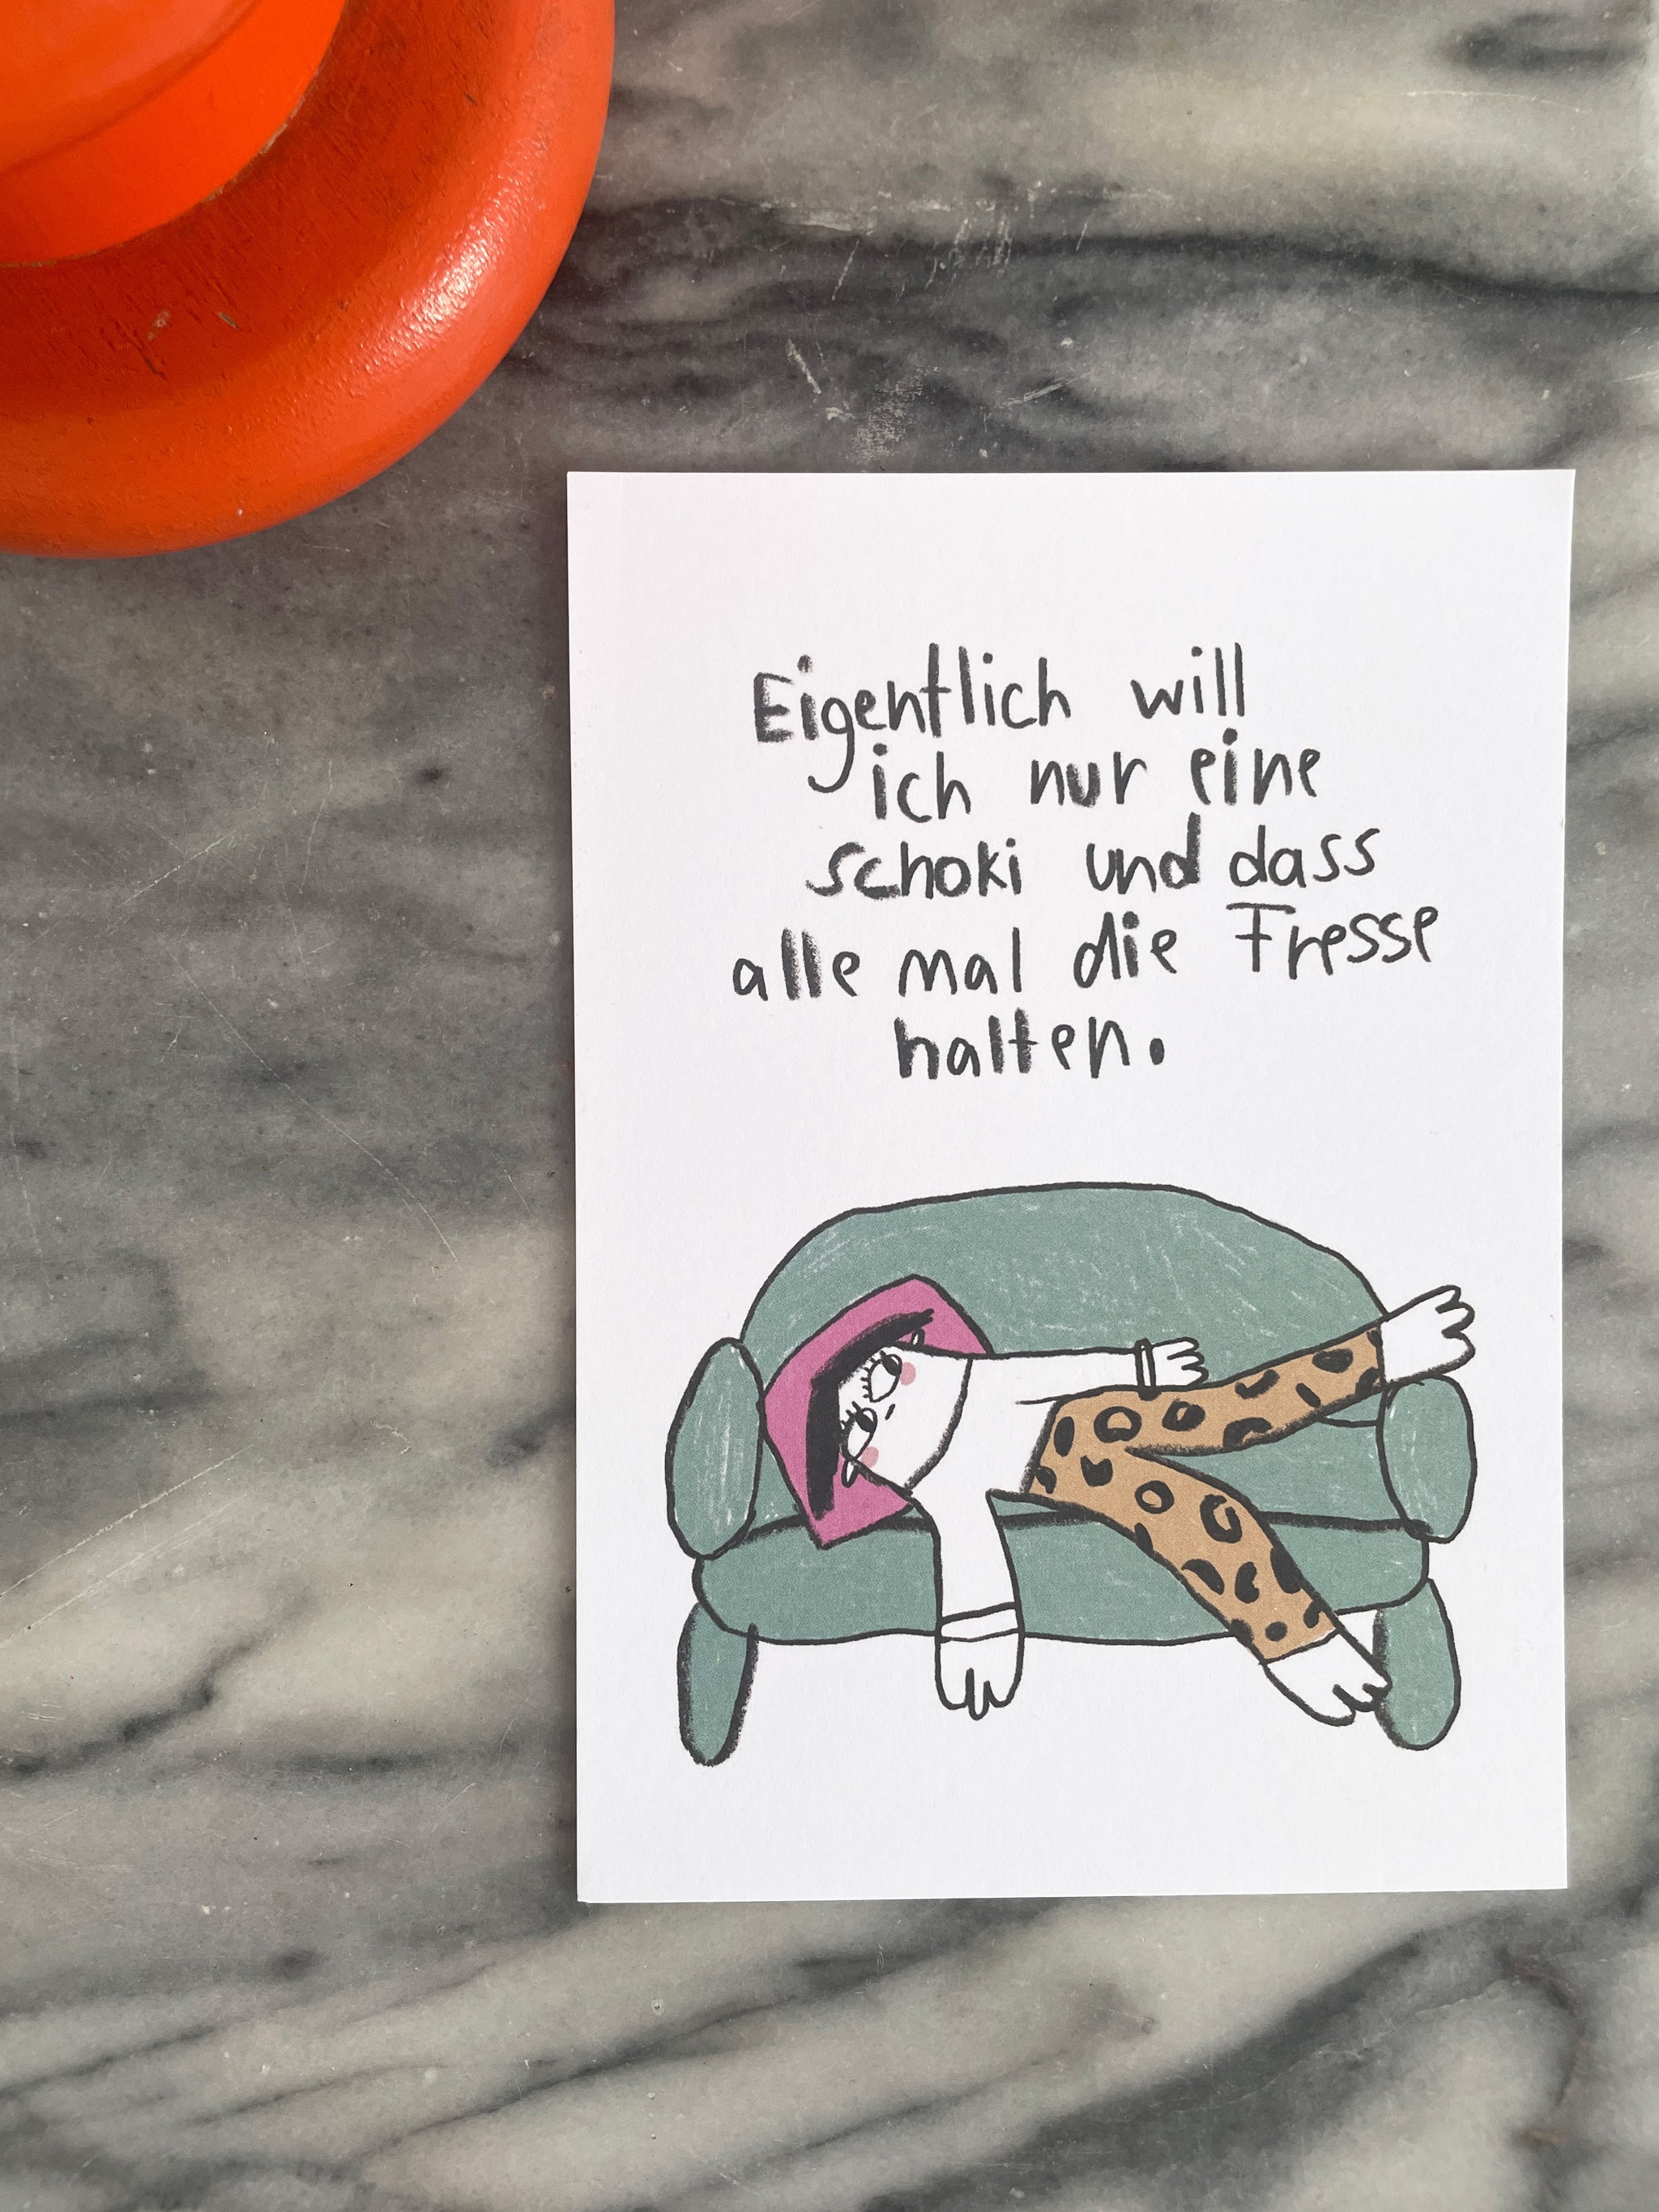 Eigentlich will
ich nur eine
schoki und dass
alle mal die Fresse
halten.